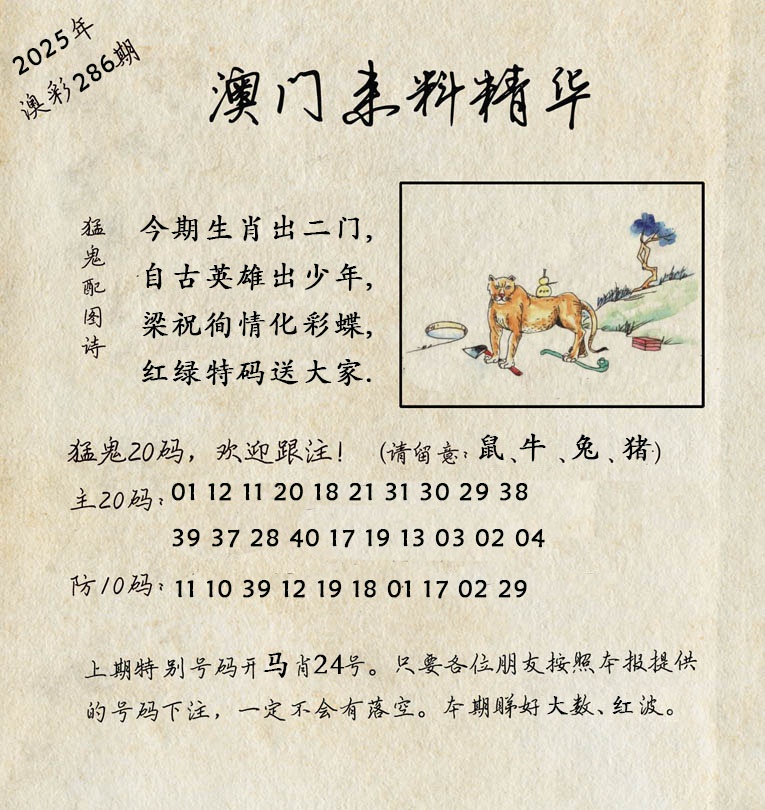 2025年
澳彩286期
澳门来料精华
猛鬼配图诗
今期生肖出二门,
自古英雄出少年,
梁祝徇情化彩蝶,
红绿特码送大家.
猛鬼20码，欢迎跟注！（请留意：鼠、牛、兔、猪）
主20码：01 12 11 20 18 21 31 30 29 38
39 37 28 40 17 19 13 03 02 04
防10码：11 10 39 12 19 18 01 17 02 29
上期特别号码开马肖24号。只要各位朋友按照本报提供
的号码下注，一定不会有落空。本期睇好大数、红波。